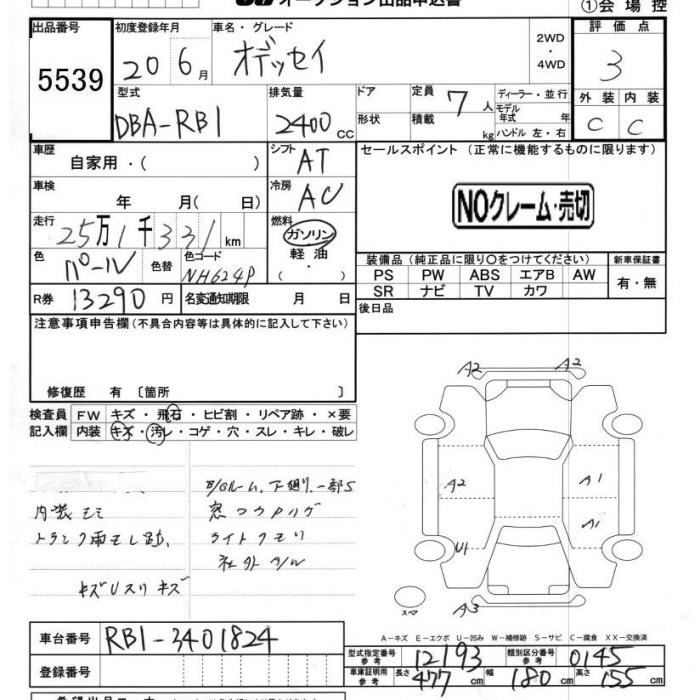 オークション出品申込書
①会場控
出品番号 初度登録年月 車名・グレード 2WD・4WD 評価点
5539 20 6月 オデッセイ 3
型式 排気量 ドア 定員 7人 ディーラー・並行 外装 内装
モデル年式 年
DBA-RB1 2400cc 形状 積載 kg ハンドル 左・右 C C
車歴 自家用・( ) シフト AT セールスポイント (正常に機能するものに限ります)
車検 年 月( 日) 冷房 AC
NOクレーム・売切
走行 25万1千331km 燃料 ガソリン
軽油・
色 パール 色替 色コード NH624P
装備品 (純正品に限り○をつけてください) 新車保証書
PS PW ABS エアB AW 有・無
SR ナビ TV カワ
R券 13290円 名変通知期限 月 日
後日品
注意事項申告欄 (不具合内容等は具体的に記入して下さい)
修復歴 有 〔箇所 〕
検査員 FW キズ・飛石・ヒビ割・リペア跡・×要
記入欄 内装 キズ・汚レ・コゲ・穴・スレ・キレ・破レ
A2 A2
A2 A1
A1
U1
A3
スペア
E/Gルーム、下廻り一部S
内装モミ 窓コウリング
トランク雨モレ跡、 ライトクモリ
社外A/W
キズUスリキズ
A-キズ E-エクボ U-凹み W-補修跡 S-サビ C-腐食 XX-交換済
車台番号 RB1-3401824
型式指定番号 参考 12193 類別区分番号 参考 0145
登録番号
車庫証明用 参考 長さ 477cm 幅 180cm 高さ 155cm